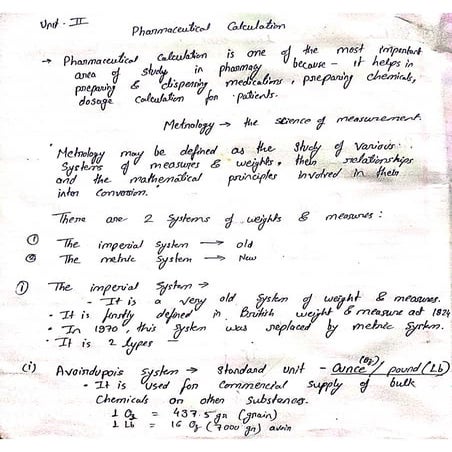 Unit - II
Pharmaceutical Calculation
→ Pharmaceutical Calculation is one of the most important
area of study in pharmacy because - it helps in
preparing & dispening medications, preparing chemicals,
dosage calculation for patients.
Metrology → the science of measurement.
"Metrology may be defined as the study of various
systems of measures & weights, their relationships
and the mathematical principles involved in their
inter conversion."
There are 2 systems of weights & measures:
① The imperial system → old
② The metric system → New
① The imperial system →
- It is a very old system of weight & measures.
- It is firstly defined in British weight & measure act 1824
- In 1970, this system was replaced by metric system.
- It is 2 types —
(i) Avoirdupois system → standard unit - ounce (Oz) / pound (Lb)
- It is used for commercial supply of bulk
chemicals on other substances.
1 Oz = 437.5 gn (grain)
1 Lb = 16 Oz (7000 gn) avoir